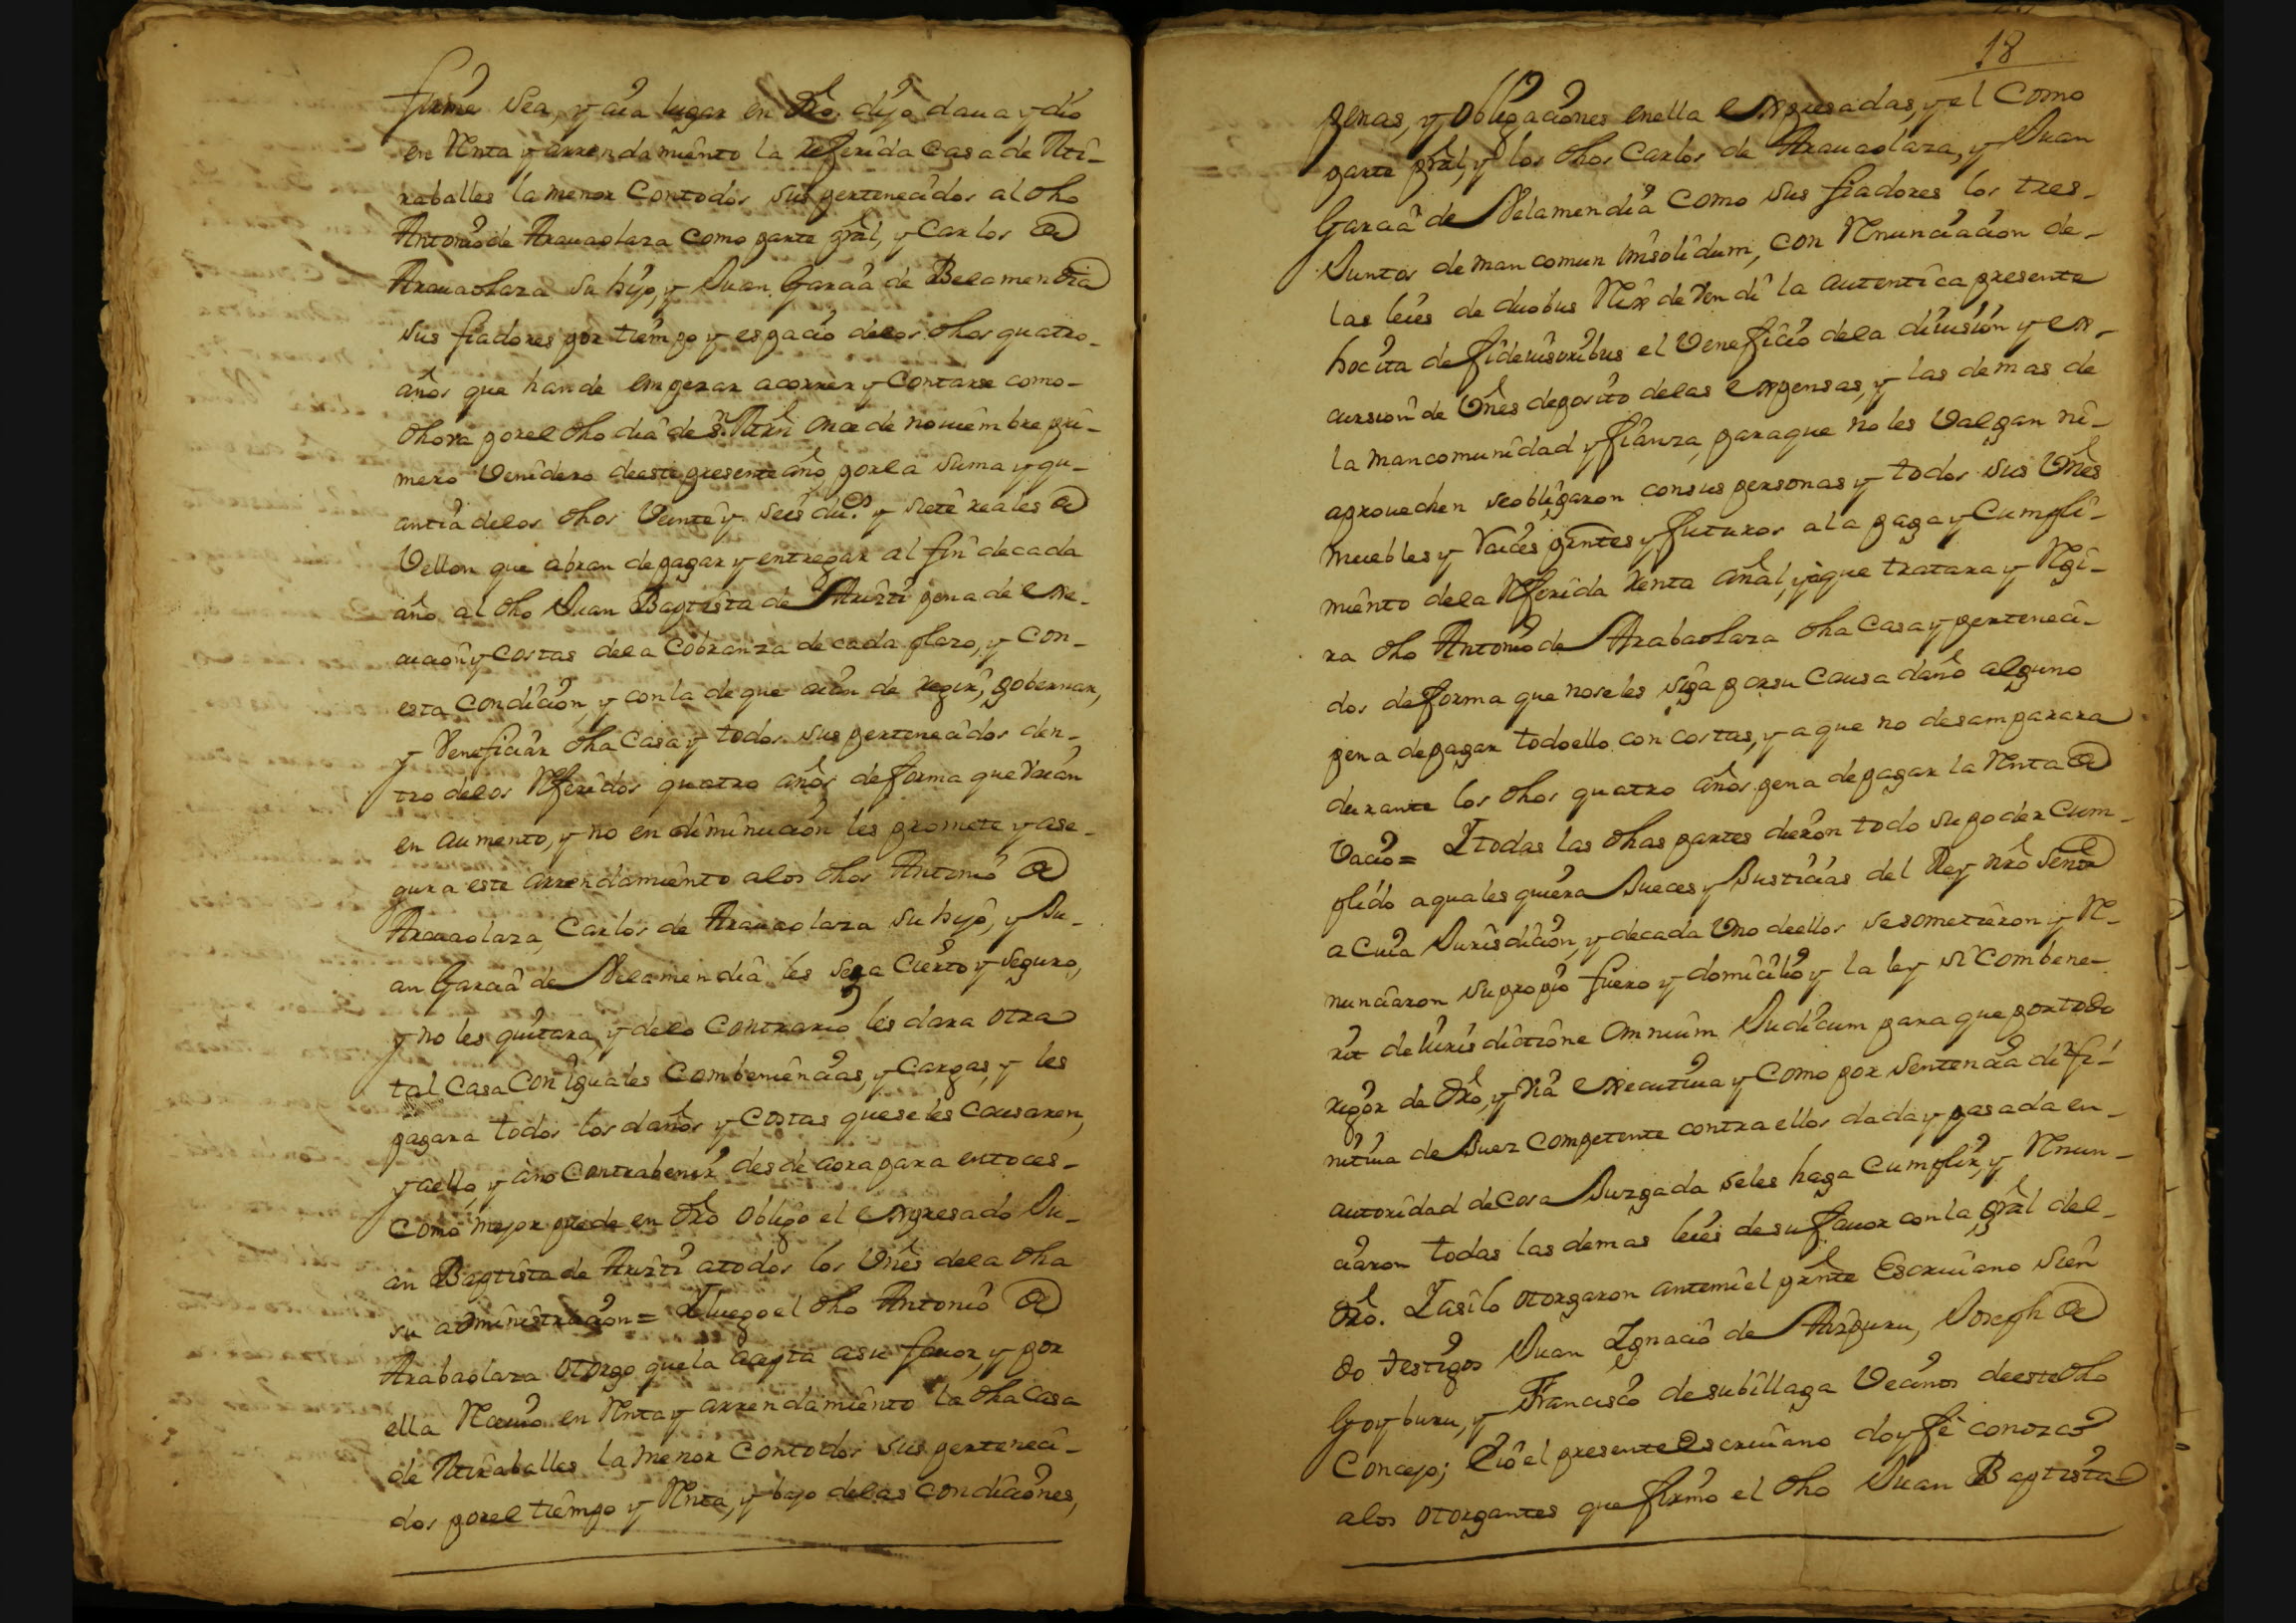 firme sea, y aia lugar en dro. dijo daua y dio
en Renta y arrendamiento la referida casa de Rti-
raballes la menor con todos sus pertenecidos al dho
Antonio de Arauaolaza como parte prãl, y Carlos de
Arauaolaza su hijo, y Juan Garcia de Belamendia
sus fiadores por tiempo y espacio de los dhos quatro-
años que han de empezar a correr y contarse como-
dho va por el dho dia de S.n Mrñ once de nouiembre pri-
mero Venidero de este presente año por la suma y qu-
antia de los dhos Veinte y seis du.os y siete reales de
Vellon que abran de pagar y entregar al fin de cada
año al dho Juan Baptista de Aristi pena de exe-
cucion y costas de la cobranza de cada plazo, y con-
esta condicion, y con la de que aian de regir, gobernar,
y Veneficiar dha Casa y todos sus pertenecidos den-
tro de los Referidos quatro años de forma que Vaian
en aumento, y no en diminucion les promete y ase-
gura este arrendamiento a los dhos Antonio de
Arauaolaza, Carlos de Arauaolaza su hijo, y Ju-
an Garcia de Velamendia les sera Cierto y seguro,
y no les quitara, y de lo contrario les dara otra
tal casa con iguales combeniencias, y cargas, y les
pagara todos los daños y costas que se les causaren,
y a ello y a no contrabenir desde aora para entoces-
como mejor puede en dro obligo el expresado Ju-
an Baptista de Aristi a todos los Vnes de la dha
su administracion = I luego el dho Antonio de
Arabaolaza otorgo que la acepta a su fauor, y por
ella Receuio en Renta y arrendamiento la dha casa
de Rtiraballes la menor con todos sus perteneci-
dos por el tiempo y Renta, y bajo de las condiciones,
18
penas, y obligaciones en ella expresadas, y el como
parte prãl, y los dhos Carlos de Arauaolaza, y Juan
Garcia de Velamendia como sus fiadores los tres-
Juntos de mancomun insolidum, con Renunciacion de-
las leies de duobus Rex de Vendi la autentica presente
hocita de fideiusoribus el Veneficio de la diuision y ex-
cursion de Vnes deposito de las expensas, y las demas de
la mancomunidad y fianza, para que no les Valgan ni-
aprouechen se obligaron con sus personas y todos sus Vnes
muebles y Raices presntes y futuros a la paga y Cumpli-
miento de la Referida renta añal, y a que tratara y Regi-
ra dho Antonio de Arabaolaza dha casa y perteneci-
dos de forma que no se les siga por su causa daño alguno
pena de pagar todo ello con costas, y a que no desamparara
durante los dhos quatro años pena de pagar la Renta de
Vacio = I todas las dhas partes dieron todo su poder cum-
plido a qualesquiera Jueces y Justicias del Rey nro señor
a cuia Jurisdicion, y de cada Vno de ellos se sometieron y Re-
nunciaron su propio fuero y domicilio y la ley si combene-
rit de iurisdictione omnium Judicum para que por todo
rigor de dro, y via executiua y como por sentencia difi-
nitiua de Juez competente contra ellos dada y pasada en-
autoridad de cosa Juzgada se les haga cumplir, y Renun-
ciaron todas las demas leies de su fauor con la grãl del-
dro. I asi lo otorgaron ante mi el prnte Escriuano sien
do testigos Juan Ignacio de Aizpuru, Joseph de
Goyburu, y Francisco de subillaga Vecinos de este dho
Concejo; E io el presente escriuano doy fe conozco
a los otorgantes que firmo el dho Juan Baptista